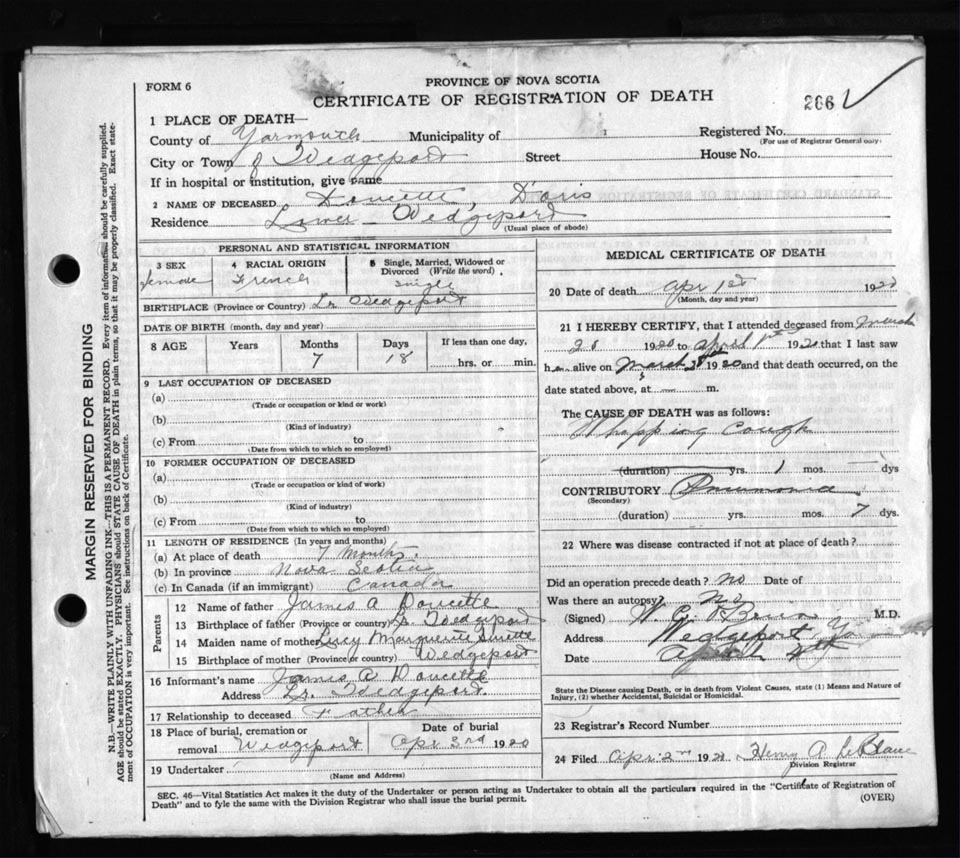 FORM 6
PROVINCE OF NOVA SCOTIA
CERTIFICATE OF REGISTRATION OF DEATH
266
1 PLACE OF DEATH—
County of Yarmouth Municipality of
Registered No.
(For use of Registrar General only)
City or Town of Wedgeport Street House No.
If in hospital or institution, give name
2 NAME OF DECEASED Doucette, Doris
Residence Lower Wedgeport
(Usual place of abode)
PERSONAL AND STATISTICAL INFORMATION
3 SEX 4 RACIAL ORIGIN 5 Single, Married, Widowed or Divorced (Write the word)
Female French Single
BIRTHPLACE (Province or Country) Lr. Wedgeport
DATE OF BIRTH (month, day and year)
8 AGE Years Months Days If less than one day,
7 18 hrs. or min.
9 LAST OCCUPATION OF DECEASED
(a)
(Trade or occupation or kind or work)
(b)
(Kind of industry)
(c) From to
(Date from which to which so employed)
10 FORMER OCCUPATION OF DECEASED
(a)
(Trade or occupation or kind of work)
(b)
(Kind of industry)
(c) From to
(Date from which to which so employed)
11 LENGTH OF RESIDENCE (In years and months)
(a) At place of death 7 Months.
(b) In province Nova Scotia
(c) In Canada (if an immigrant) Canada
Parents
12 Name of father James A Doucette
13 Birthplace of father (Province or country) Lr. Wedgeport
14 Maiden name of mother Lucy Marguerite Surette
15 Birthplace of mother (Province or country) Wedgeport
16 Informant's name James A Doucette
Address Lr. Wedgeport
17 Relationship to deceased Father
18 Place of burial, cremation or removal Wedgeport
Date of burial
Apr 3rd 1920
19 Undertaker
(Name and Address)
MEDICAL CERTIFICATE OF DEATH
20 Date of death Apr 1st 1920
(Month, day and year)
21 I HEREBY CERTIFY, that I attended deceased from March
20 1920 to April 1st 1920 that I last saw
h alive on March 1920 and that death occurred, on the
date stated above, at m.
The CAUSE OF DEATH was as follows:
Whopping Cough
(duration) yrs. 1 mos. dys
CONTRIBUTORY Pneumonia
(Secondary)
(duration) yrs. mos. 7 dys.
22 Where was disease contracted if not at place of death?
Did an operation precede death? no Date of
Was there an autopsy? No
(Signed) W. G. M.D.
Address Wedgeport
Date April
State the Disease causing Death, or in death from Violent Causes, state (1) Means and Nature of
Injury, (2) whether Accidental, Suicidal or Homicidal.
23 Registrar's Record Number
24 Filed Apr 2nd 1920 Henry A LeBlanc
Division Registrar
SEC. 46—Vital Statistics Act makes it the duty of the Undertaker or person acting as Undertaker to obtain all the particulars required in the "Certificate of Registration of
Death" and to fyle the same with the Division Registrar who shall issue the burial permit.
(OVER)
MARGIN RESERVED FOR BINDING
N.B.—WRITE PLAINLY WITH UNFADING INK—THIS IS A PERMANENT RECORD. Every item of information should be carefully supplied.
AGE should be stated EXACTLY. PHYSICIANS should STATE CAUSE OF DEATH in plain terms, so that it may be properly classified. Exact statement of OCCUPATION is very important. See instructions on back of Certificate.